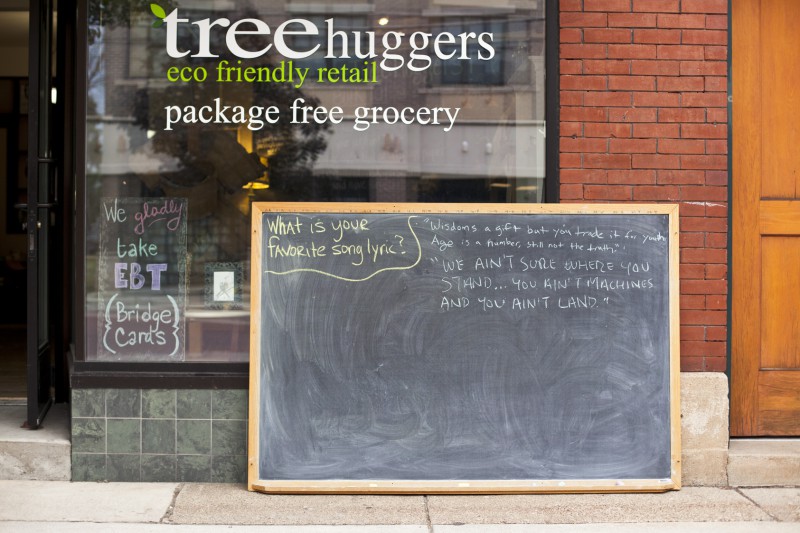 treehuggers
eco friendly retail
package free grocery
We gladly
take
EBT
(Bridge
Cards)
What is your
favorite song lyric?
"Wisdom's a gift but you trade it for youth
Age is a number, still not the truth."
"WE AIN'T SURE WHERE YOU
STAND... YOU AIN'T MACHINES
AND YOU AIN'T LAND."